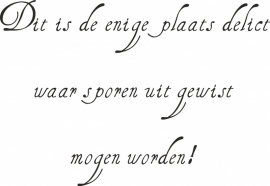 Dit is de enige plaats delict
waar sporen uit gewist
mogen worden!